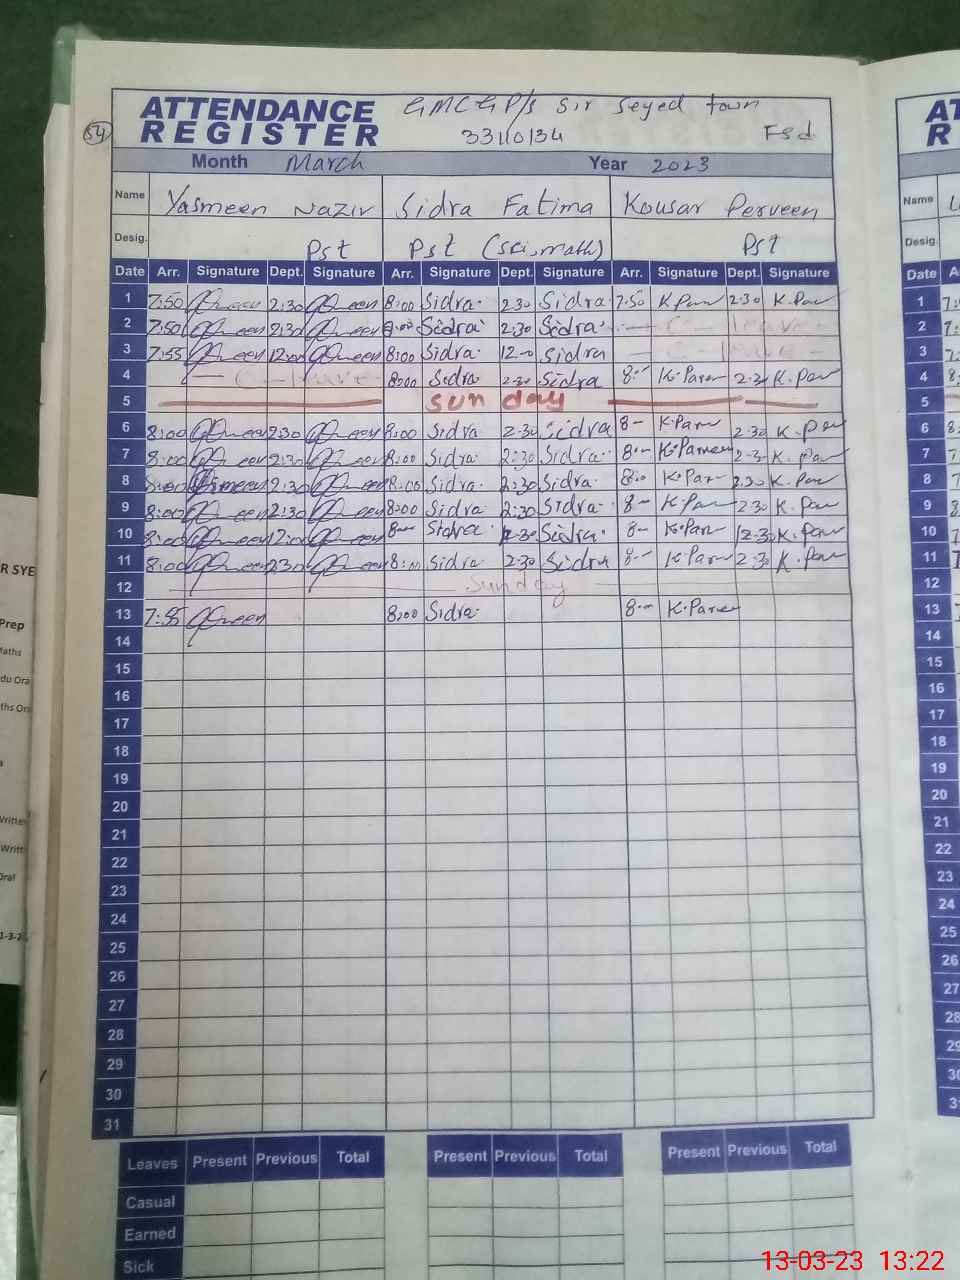 ATTENDANCE GMCGP/s Sir Seyed town
54 REGISTER 33110134 Fsd
Month March Year 2023
Name Yasmeen Nazir Sidra Fatima Kousar Perveen
Desig. Pst Pst (sci,math) Pst
Date Arr. Signature Dept. Signature Arr. Signature Dept. Signature Arr. Signature Dept. Signature
1 7:50 2:30 8:00 Sidra 2:30 Sidra 7:50 K.Parv 2:30 K.Parv
2 7:50 2:30 8:00 Sidra 2:30 Sidra C-leave
3 7:55 12:00 8:00 Sidra 12-0 Sidra C-leave
4 C-leave 8:00 Sidra 2:30 Sidra 8-- K.Parv 2:30 K.Parv
5 sunday
6 8:00 2:30 8:00 Sidra 2:30 Sidra 8- K.Parv 2:30 K.Parv
7 8:00 2:30 8:00 Sidra 2:30 Sidra 8-- K.Parveen 2-3- K.Parv
8 8:00 2:30 8:00 Sidra 2:30 Sidra 8:0 K.Parv 2:30 K.Parv
9 8:00 2:30 8:00 Sidra 2:30 Sidra 8- K.Parv 2:30 K.Parv
10 8:00 12:00 8-- Sidra 12-30 Sidra 8- K.Parv 12-30 K.Parv
11 8:00 2:30 8:00 Sidra 2:30 Sidra 8-- K.Parv 2:30 K.Parv
12 Sunday
13 7:55 8:00 Sidra 8-- K.Parveen
14
15
16
17
18
19
20
21
22
23
24
25
26
27
28
29
30
31
Leaves Present Previous Total Present Previous Total Present Previous Total
Casual
Earned
Sick
13-03-23 13:22